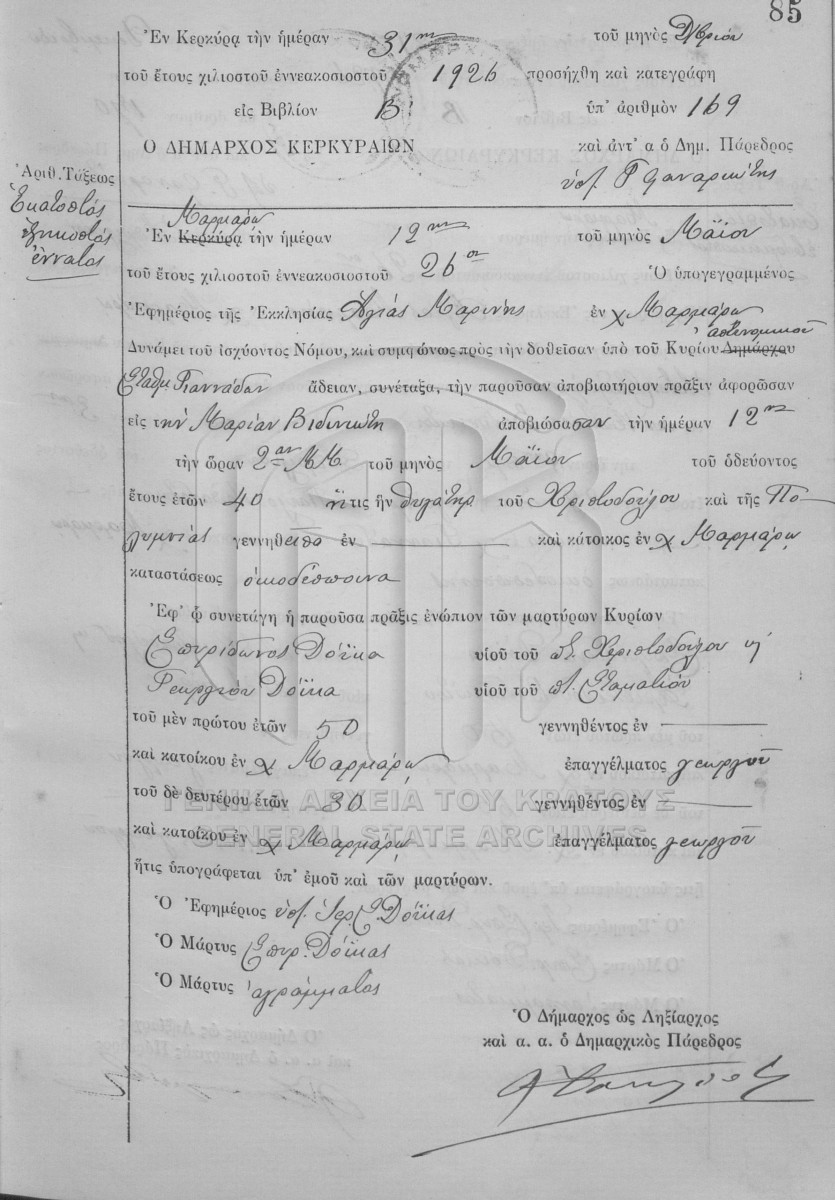 85
Ἐν Κερκύρᾳ τὴν ἡμέραν 31ην τοῦ μηνὸς Δ/βρίου
τοῦ ἔτους χιλιοστοῦ ἐννεακοσιοστοῦ 1926 προσήχθη καὶ κατεγράφη
εἰς Βιβλίον Β! ὑπ' ἀριθμὸν 169
Ο ΔΗΜΑΡΧΟΣ ΚΕΡΚΥΡΑΙΩΝ καὶ ἀντ' α ὁ Δημ. Πάρεδρος
ὑπ. Γ Φαναριώτης
Ἀριθ. Τάξεως
Ἑκατοστός
ἑξηκοστός
ἔννατος
Μαρμάρω
Ἐν Κερκύρᾳ τὴν ἡμέραν 12ην τοῦ μηνὸς Μαΐου
τοῦ ἔτους χιλιοστοῦ ἐννεακοσιοστοῦ 26ου Ὁ ὑπογεγραμμένος
Ἐφημέριος τῆς Ἐκκλησίας Ἁγίας Μαρίνης ἐν χ Μαρμάρω
ἀστυνομικοῦ
Δυνάμει τοῦ ἰσχύοντος Νόμου, καὶ συμφώνως πρὸς τὴν δοθεῖσαν ὑπὸ τοῦ Κυρίου Δημάρχου
Σταθμ. Γιαννάδων ἄδειαν, συνέταξα, τὴν παροῦσαν ἀποβιωτήριον πρᾶξιν ἀφορῶσαν
εἰς τὴν Μαρίαν Βιδινιώτη ἀποβιώσασαν τὴν ἡμέραν 12ην
τὴν ὥραν 2αν ΜΜ τοῦ μηνὸς Μαΐου τοῦ ὁδεύοντος
ἔτους ἐτῶν 40 ἥτις ἦν θυγάτηρ τοῦ Χριστοδούλου καὶ τῆς Πο-
λυμνίας γεννηθεῖσα ἐν καὶ κάτοικος ἐν χ Μαρμάρω
καταστάσεως οἰκοδέσποινα
Ἐφ' ᾧ συνετάγη ἡ παροῦσα πρᾶξις ἐνώπιον τῶν μαρτύρων Κυρίων
Σπυρίδωνος Δόϊκα υἱοῦ τοῦ πτ. Χριστοδούλου κ
Γεωργίου Δόϊκα υἱοῦ τοῦ πτ. Σταματίου
τοῦ μὲν πρώτου ἐτῶν 50 γεννηθέντος ἐν
καὶ κατοίκου ἐν χ Μαρμάρω ἐπαγγέλματος γεωργοῦ
τοῦ δὲ δευτέρου ἐτῶν 30 γεννηθέντος ἐν
ΓΕΝΙΚΑ ΑΡΧΕΙΑ ΤΟΥ ΚΡΑΤΟΥΣ
καὶ κατοίκου ἐν χ Μαρμάρω ἐπαγγέλματος γεωργοῦ
GENERAL STATE ARCHIVES
ἥτις ὑπογράφεται ὑπ' ἐμοῦ καὶ τῶν μαρτύρων.
Ὁ Ἐφημέριος ὑπ. Ἱερ. Σ. Δόϊκας
Ὁ Μάρτυς Σπυρ. Δόϊκας
Ὁ Μάρτυς ἀγράμματος
Ὁ Δήμαρχος ὡς Ληξίαρχος
καὶ α. α. ὁ Δημαρχικὸς Πάρεδρος